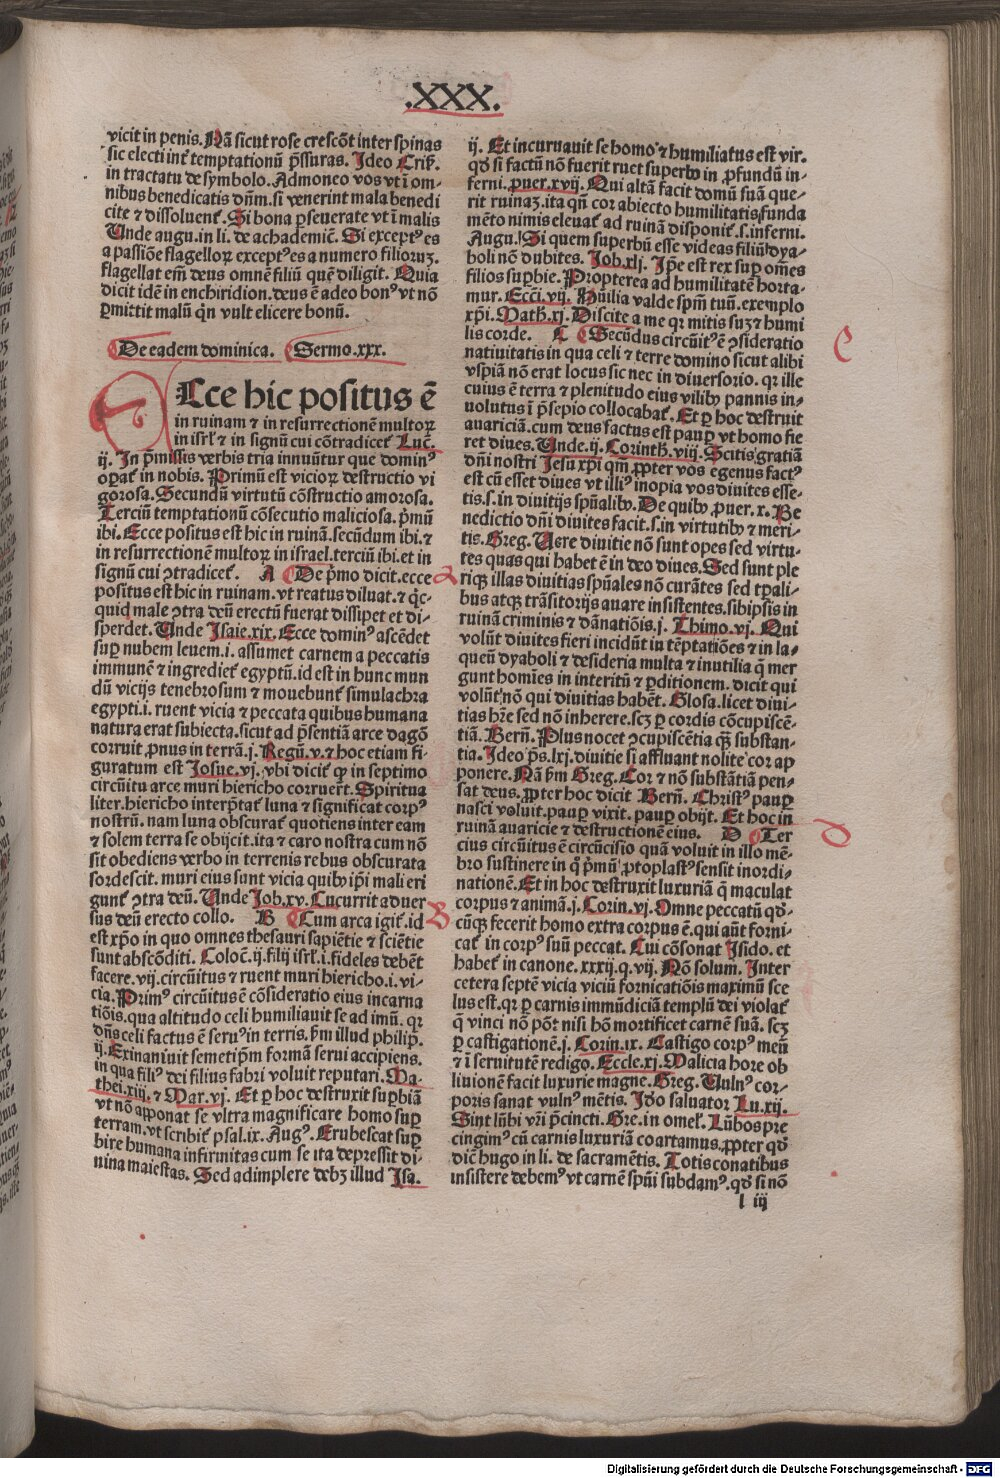 .XXX.
vicit in penis. Nã sicut rose crescõt inter spinas
sic electi inť temptationũ p̃ssuras. Ideo Criſ.
in tractatu de symbolo. Admoneo vos vt ĩ om-
nibus benedicatis dñm. si venerint mala benedi
cite ⁊ dissoluenť. Si bona ꝑseuerate vt ĩ malis
Unde augu. in li. de achademič. Si exceptꝰ es
a passiõe flagelloꝝ exceptꝰ es a numero filioruꝫ.
flagellat em̃ deus omnẽ filiũ quẽ diligit. Quia
dicit idẽ in enchiridion. deus ẽ adeo bonꝰ vt nõ
ꝑmittit malũ q̃n vult elicere bonũ.
De eadem dominica. Sermo.xxx.
Ecce hic positus ẽ
in ruinam ⁊ in resurrectionẽ multoꝝ
in isrľ ⁊ in signũ cui cõtradiceť Luč.
ij. In p̃missis verbis tria innuũtur que dominꝰ
oꝑať in nobis. Primũ est vicioꝝ destructio vi
gorosa. Secundũ virtutũ cõstructio amorosa.
Terciũ temptationũ cõsecutio maliciosa. p̃mũ
ibi. Ecce positus est hic in ruinã. secũdum ibi. ⁊
in resurrectionẽ multoꝝ in israel. terciũ ibi. et in
signũ cui ꝯtradiceť. A De p̃mo dicit. ecce
positus est hic in ruinam. vt reatus diluat. ⁊ q̇c-
quid male ꝯtra deũ erectũ fuerat dissipet et di-
sperdet. Unde Isaie.xix. Ecce dominꝰ ascẽdet
suꝑ nubem leuem .i. assumet carnem a peccatis
immunẽ ⁊ ingredieť egyptũ. id est in hunc mun
dũ vicijs tenebrosum ⁊ mouebunť simulachra
egypti .i. ruent vicia ⁊ peccata quibus humana
natura erat subiecta. sicut ad p̃sentiã arce dagõ
corruit ꝓnus in terrã. j. Regũ.v. ⁊ hoc etiam fi-
guratum est Iosue.vj. vbi diciť ꝙ in septimo
circũitu arce muri hiericho corruerť. Spiritua
liter. hiericho interp̃tať luna ⁊ significat corpꝰ
nostrũ. nam luna obscurať quotiens inter eam
⁊ solem terra se obijcit. ita ⁊ caro nostra cum nõ
sit obediens verbo in terrenis rebus obscurata
sordescit. muri eius sunt vicia quibꝰ ip̃i mali eri
gunť ꝯtra deũ. Unde Iob.xv. Cucurrit aduer
sus deũ erecto collo. B Cum arca igiť .id
est xp̃o in quo omnes thesauri sapiẽtie ⁊ sciẽtie
sunt abscõditi. Coloč.ij. filij isrľ .i. fideles debẽt
facere .vij. circũitus ⁊ ruent muri hiericho .i. vi-
cia. Primꝰ circũitus ẽ cõsideratio eius incarna
tiõis. qua altitudo celi humiliauit se ad imũ. qꝛ
dñs celi factus ẽ seruꝰ in terris. ẜm illud philip̃.
ij. Exinaniuit semetip̃m formã serui accipiens.
in qua filiꝰ dei filius fabri voluit reputari. Ma-
thei.xiij. ⁊ Mar.vj. Et ꝑ hoc destruxit suꝑbiã
vt nõ apponat se vltra magnificare homo suꝑ
terram. vt scribiť psal.ix. Augꝰ. Erubescat suꝑ
bire humana infirmitas cum se ita depressit di-
uina maiestas. Sed adimplere debꝫ illud Isa.
ij. Et incuruauit se homo ⁊ humiliatus est vir.
qđ si factũ nõ fuerit ruet superbꝰ in ꝓfundũ in-
ferni. puer.xvij. Qui altã facit domũ suã que-
rit ruinaꝫ. ita qñ cor abiecto humilitatis funda
mẽto nimis eleuať ad ruinã disponiť .s. inferni.
Augu. Si quem superbũ esse videas filiũ dya-
boli nõ dubites. Iob.xlj. Ip̃e est rex suꝑ om̃es
filios suꝑbie. Propterea ad humilitatẽ horta-
mur. Ecc̃i.vij. Hũilia valde sp̃m tuũ. exemplo
xp̃i. Math.xj. Discite a me qꝛ mitis suꝫ ⁊ humi
lis corde. C Secũdus circũitꝰ ẽ ꝯsideratio
natiuitatis in qua celi ⁊ terre domino sicut alibi
vspiã nõ erat locus sic nec in diuersorio. qꝛ ille
cuius ẽ terra ⁊ plenitudo eius vilibꝰ pannis in-
uolutus ĩ p̃sepio collocabať. Et ꝑ hoc destruit
auariciã. cum deus factus est pauꝑ vt homo fie
ret diues. Unde.ij. Corinth.viij. Scitis gratiã
dñi nostri Jesu xp̃i qm̃ ꝓpter vos egenus factꝰ
est cũ esset diues vt illiꝰ inopia vos diuites esse-
tis .s. in diuitijs sp̃ualibꝰ. De quibꝰ ꝓuer.x. Be
nedictio dñi diuites facit .s. in virtutibꝰ ⁊ meri-
tis. Greg. Uere diuitie nõ sunt opes sed virtu-
tes quas qui habet ẽ in deo diues. Sed sunt ple
riqꝫ illas diuitias sp̃uales nõ curãtes sed tꝑali-
bus atqꝫ trãsitorijs auare insistentes. sibip̃sis in
ruinã criminis ⁊ dãnatiõis. j. Thimo.vj. Qui
volũt diuites fieri incidũt in tẽptatiões ⁊ in la-
queũ dyaboli ⁊ desideria multa ⁊ inutilia q̃ mer
gunt homĩes in interitũ ⁊ ꝑditionem. dicit qui
volũt. nõ qui diuitias habẽt. Glosa. licet diui-
tias hr̃e sed nõ inherere. scꝫ ꝑ cordis cõcupiscẽ-
tiã. Berñ. Plus nocet ꝯcupiscẽtia qꝫ̃ substan-
tia. Ideo p̃s.lxj. diuitie si affluant nolite cor ap
ponere. Nã ẜm Greg. Cor ⁊ nõ substãtiã pen-
sat deus. ꝓpter hoc dicit Berñ. Christꝰ pauꝑ
nasci voluit. pauꝑ vixit. pauꝑ obijt. Et hoc in
ruinã auaricie ⁊ destructionẽ eius. D Ter
cius circũitus ẽ circũcisio quã voluit in illo mẽ-
bro sustinere in q̇ p̃mũ ꝓtoplastꝰ sensit inordi-
nationẽ. Et in hoc destruxit luxuriã q̃ maculat
corpus ⁊ animã. j. Corin.vj. Omne peccatũ qđ-
cũqꝫ fecerit homo extra corpus ẽ. qui aũt forni-
cať in corpꝰ suũ peccat. Cui cõsonat Isido. et
habeť in canone. xxxij.q.vij. Nõ solum. Inter
cetera septẽ vicia viciũ fornicatiõis maximũ sce
lus est. qꝛ ꝑ carnis immũdiciã templũ dei violať
q̃ vinci nõ põt nisi hõ mortificet carnẽ suã. scꝫ
ꝑ castigationẽ. j. Corin.ix. Castigo corpꝰ meũ
⁊ ĩ seruitutẽ redigo. Eccle.xj. Malicia hore ob
liuionẽ facit luxurie magne. Greg. Uulnꝰ cor-
poris sanat vulnꝰ mẽtis. Iđo saluator Lu.xij.
Sint lũbi vr̃i p̃cincti. Gre. in omeľ. Lũbos pre
cingimꝰ cũ carnis luxuriã coartamus. ꝓpter qđ
dič hugo in li. de sacramẽtis. Totis conatibus
insistere debemꝰ vt carnẽ sp̃ui subdamꝰ. qđ si nõ
l iij
Digitalisierung gefördert durch die Deutsche Forschungsgemeinschaft - DFG